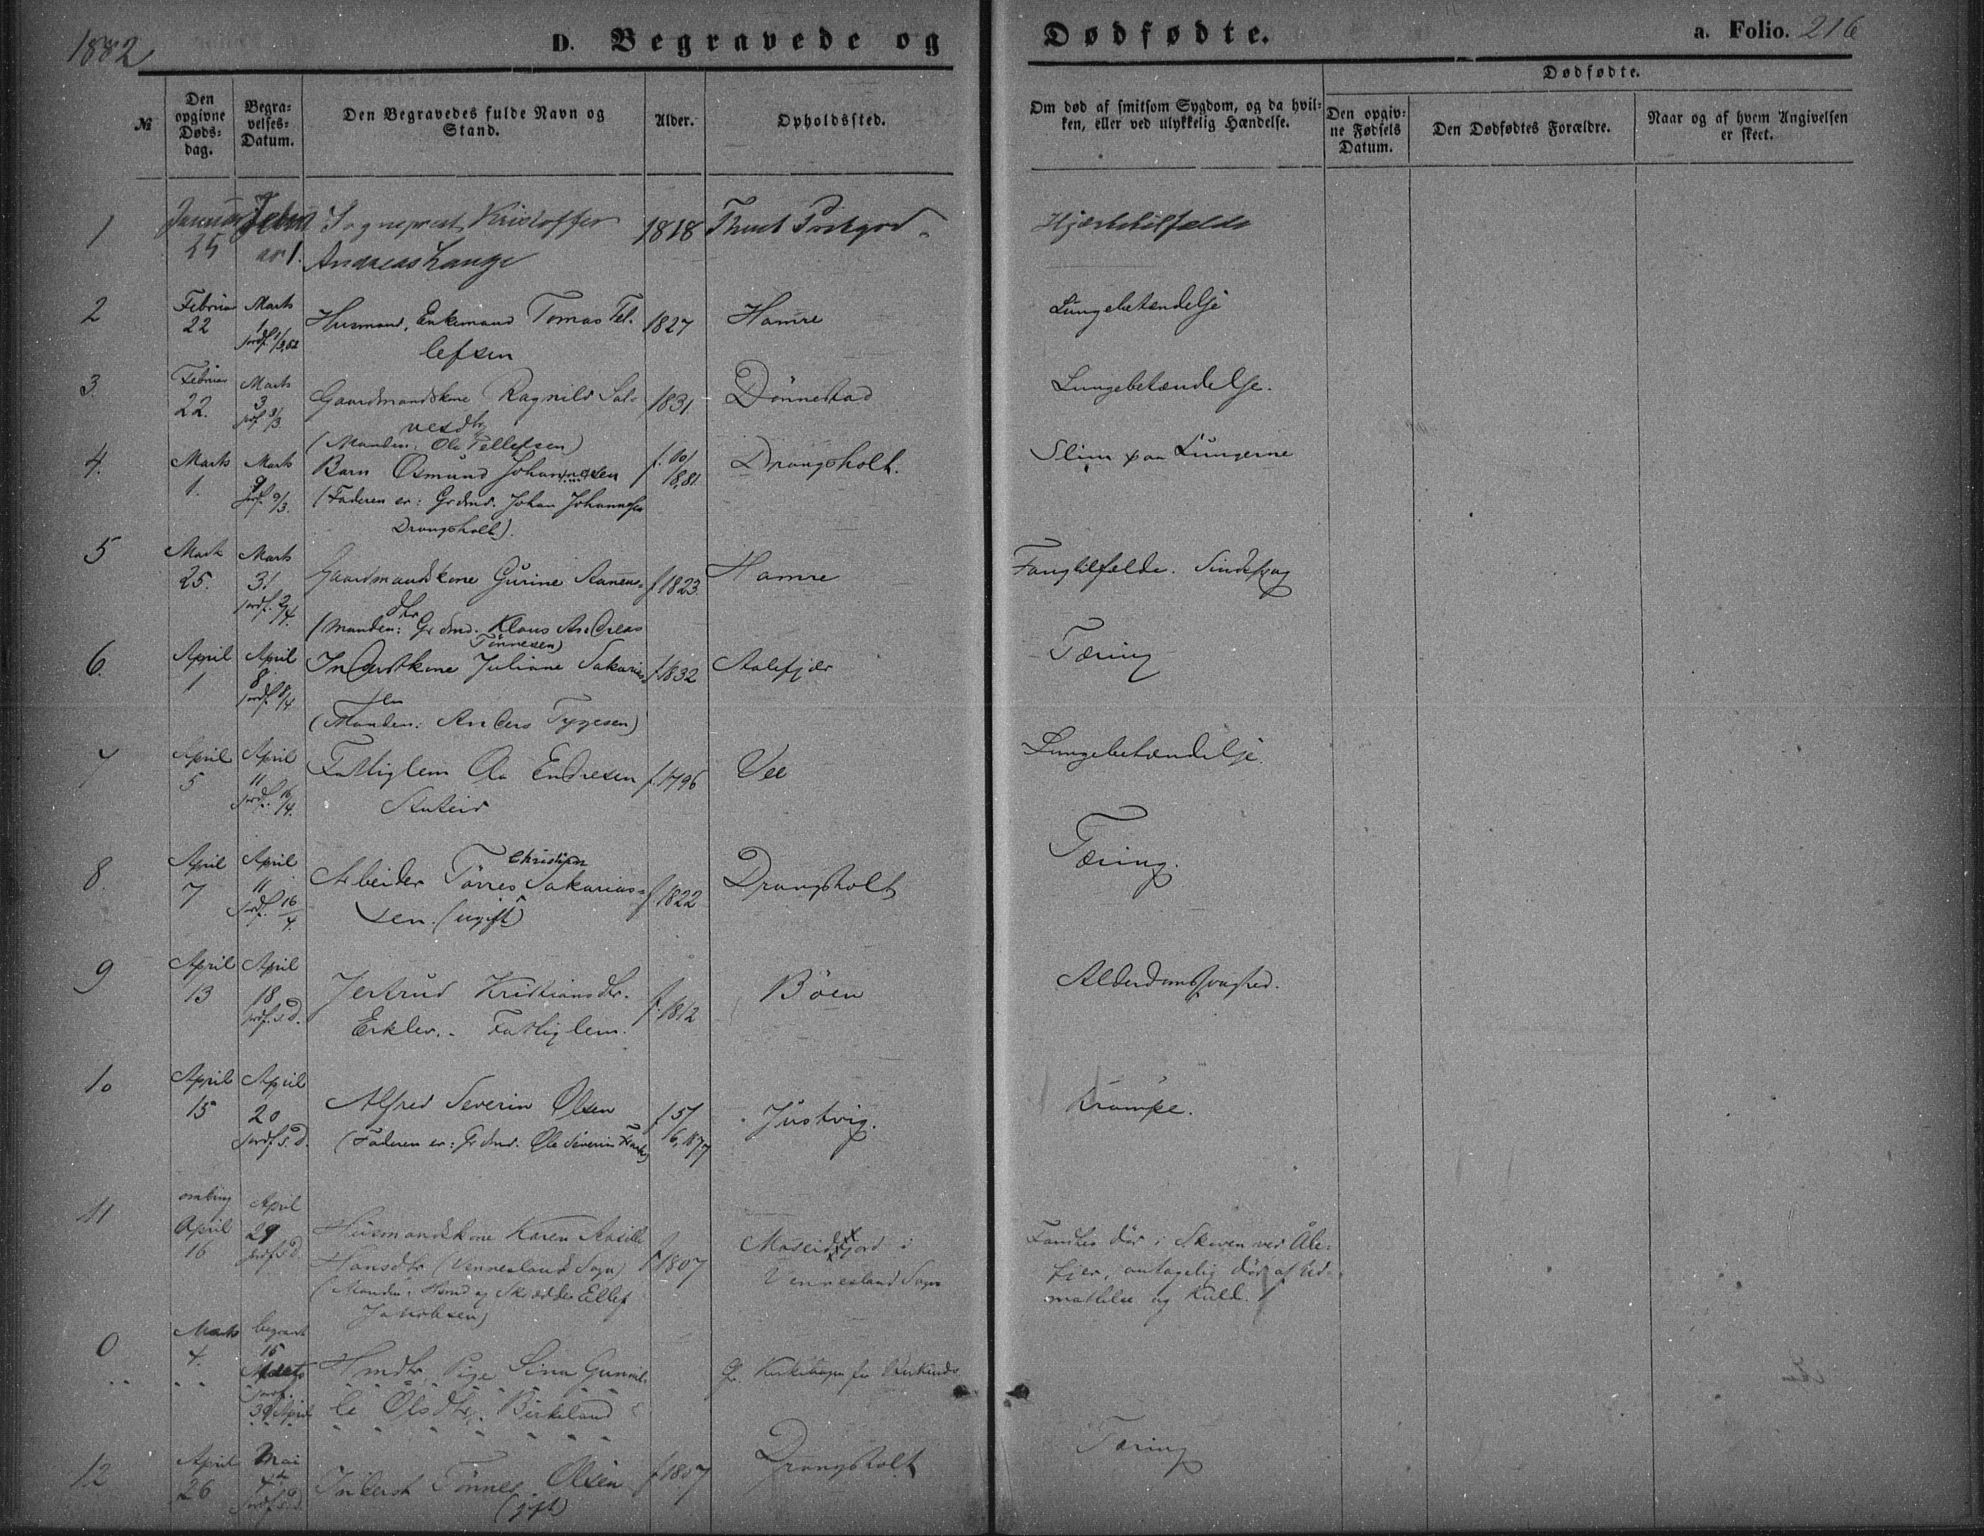 1882
D. Begravede og
Dødfødte.
a. Folio. 216
№
Den opgivne Døds-dag.
Begra-velses-Datum.
Den Begravedes fulde Navn og Stand.
Alder.
Opholdssted.
Om død af smitsom Sygdom, og da hvil-ken, eller ved ulykkelig Hændelse.
Dødfødte.
Den opgiv-ne Fødsels Datum.
Den Dødfødtes Forældre.
Naar og af hvem Angivelsen er skeet.
1
Januar 25
Febru ar 1.
Sogneprest Kristoffer
Andreas Lange
1818
Thveit
Hjertetilfælde
2
Februar 22
Marts 1
jordf. 1/3,82
Husmand, Enkemand Tomas Tel-
lefsen
1827
Hamre
Lungebetændelse
3.
Februar 22.
Marts 3
jordf. 3/3
Gaardmandskone Ragnild Sal-
vesdtr
(Manden: Ole Tellefsen)
1831
Dönnestad
Lungebetændelse.
4.
Marts 1.
Marts 9
jordf. 9/3.
Barn Osmund Johannesen
(Faderen er: Grdmd. Johan Johannesen
Drangsholt).
f.
1881.
Drangsholt.
Slim paa Lungerne
5
Marts 25.
Marts 31
jordf. 2/4.
Gaardmandskone Gurine
dtr
(Manden: Grdmd. Klaus Andreas
Tönnesen)
f 1823.
Hamre
6.
April 1
April 8
jordf. 8/4
Inderstkone Juliane Sakarias
dtr
(Manden: Anders Tygesen)
f. 1832
Aalefjær
Tæring
7
April 5
April 11
jordf. 16/4.
Fattiglem Ole Endresen
f. 1796
Vee
Lungebetændelse.
8.
April 7
April 11
jordf. 16/4.
Christian
Arbeider Törres Sakarias-
sen. (ugift)
f 1822
Drangsholt
Tæring.
9
April 13
April 18
jordf. s.D.
Jertrud Kristiansdtr.
Erklev. Fattiglem.
f. 1812
Böen
Alderdomssvaghed.
10
April 15
April 20
jordf. s.D.
Alfred Severin Olsen
(Faderen er: Grdmd. Ole Severin
f 5/6, 1877
Justvig.
Krampe.
11
omkring April 16
April 29
jordf. s.D.
Husmandskone Karen Aasille
Hansdtr (Vennesland Sogn)
(Manden: Hsmd og Skrædder Ellef
Jakobsen)
f. 1807
Moseidfjord i
Vennesland Sogn
Fandtes död i Skoven ved Åle-
fjer, antagelig död af Ud-
mattelse og Kulde.
0
Marts 4.
begravet 15 Marts
jordf. 30 April
Hmdtr. Pige Sina Gunnil-
le Olsdtr. Birkeland
12
April 26
Mai 4de
jordf. s.D.
Inderst Tönnes Olsen
(gift)
f 1807
Drangsholt
Tæring